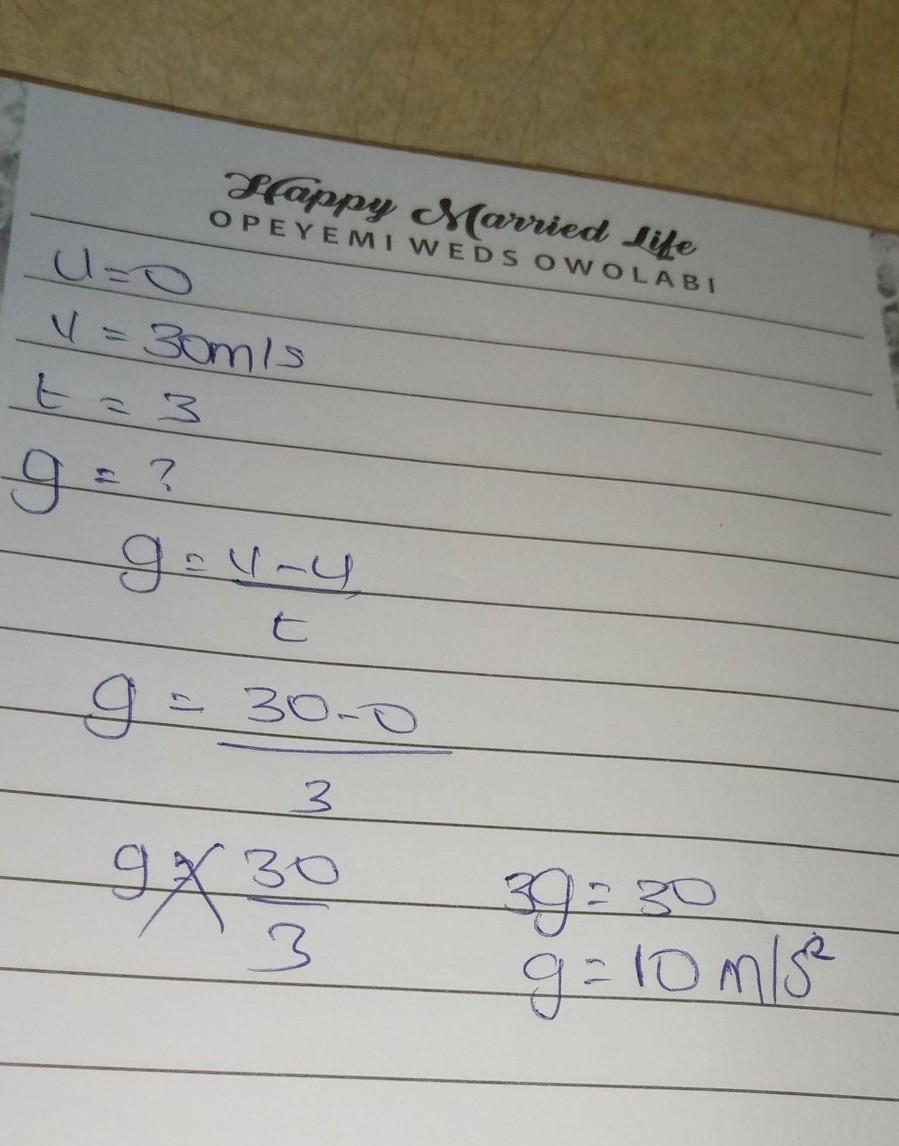 Happy Married Life
OPEYEMI WEDS OWOLABI
U=0
V = 30m/s
t = 3
g = ?
g = V-U
t
g = 30-0
3
g = 30
3
3g = 30
g = 10 m/s²